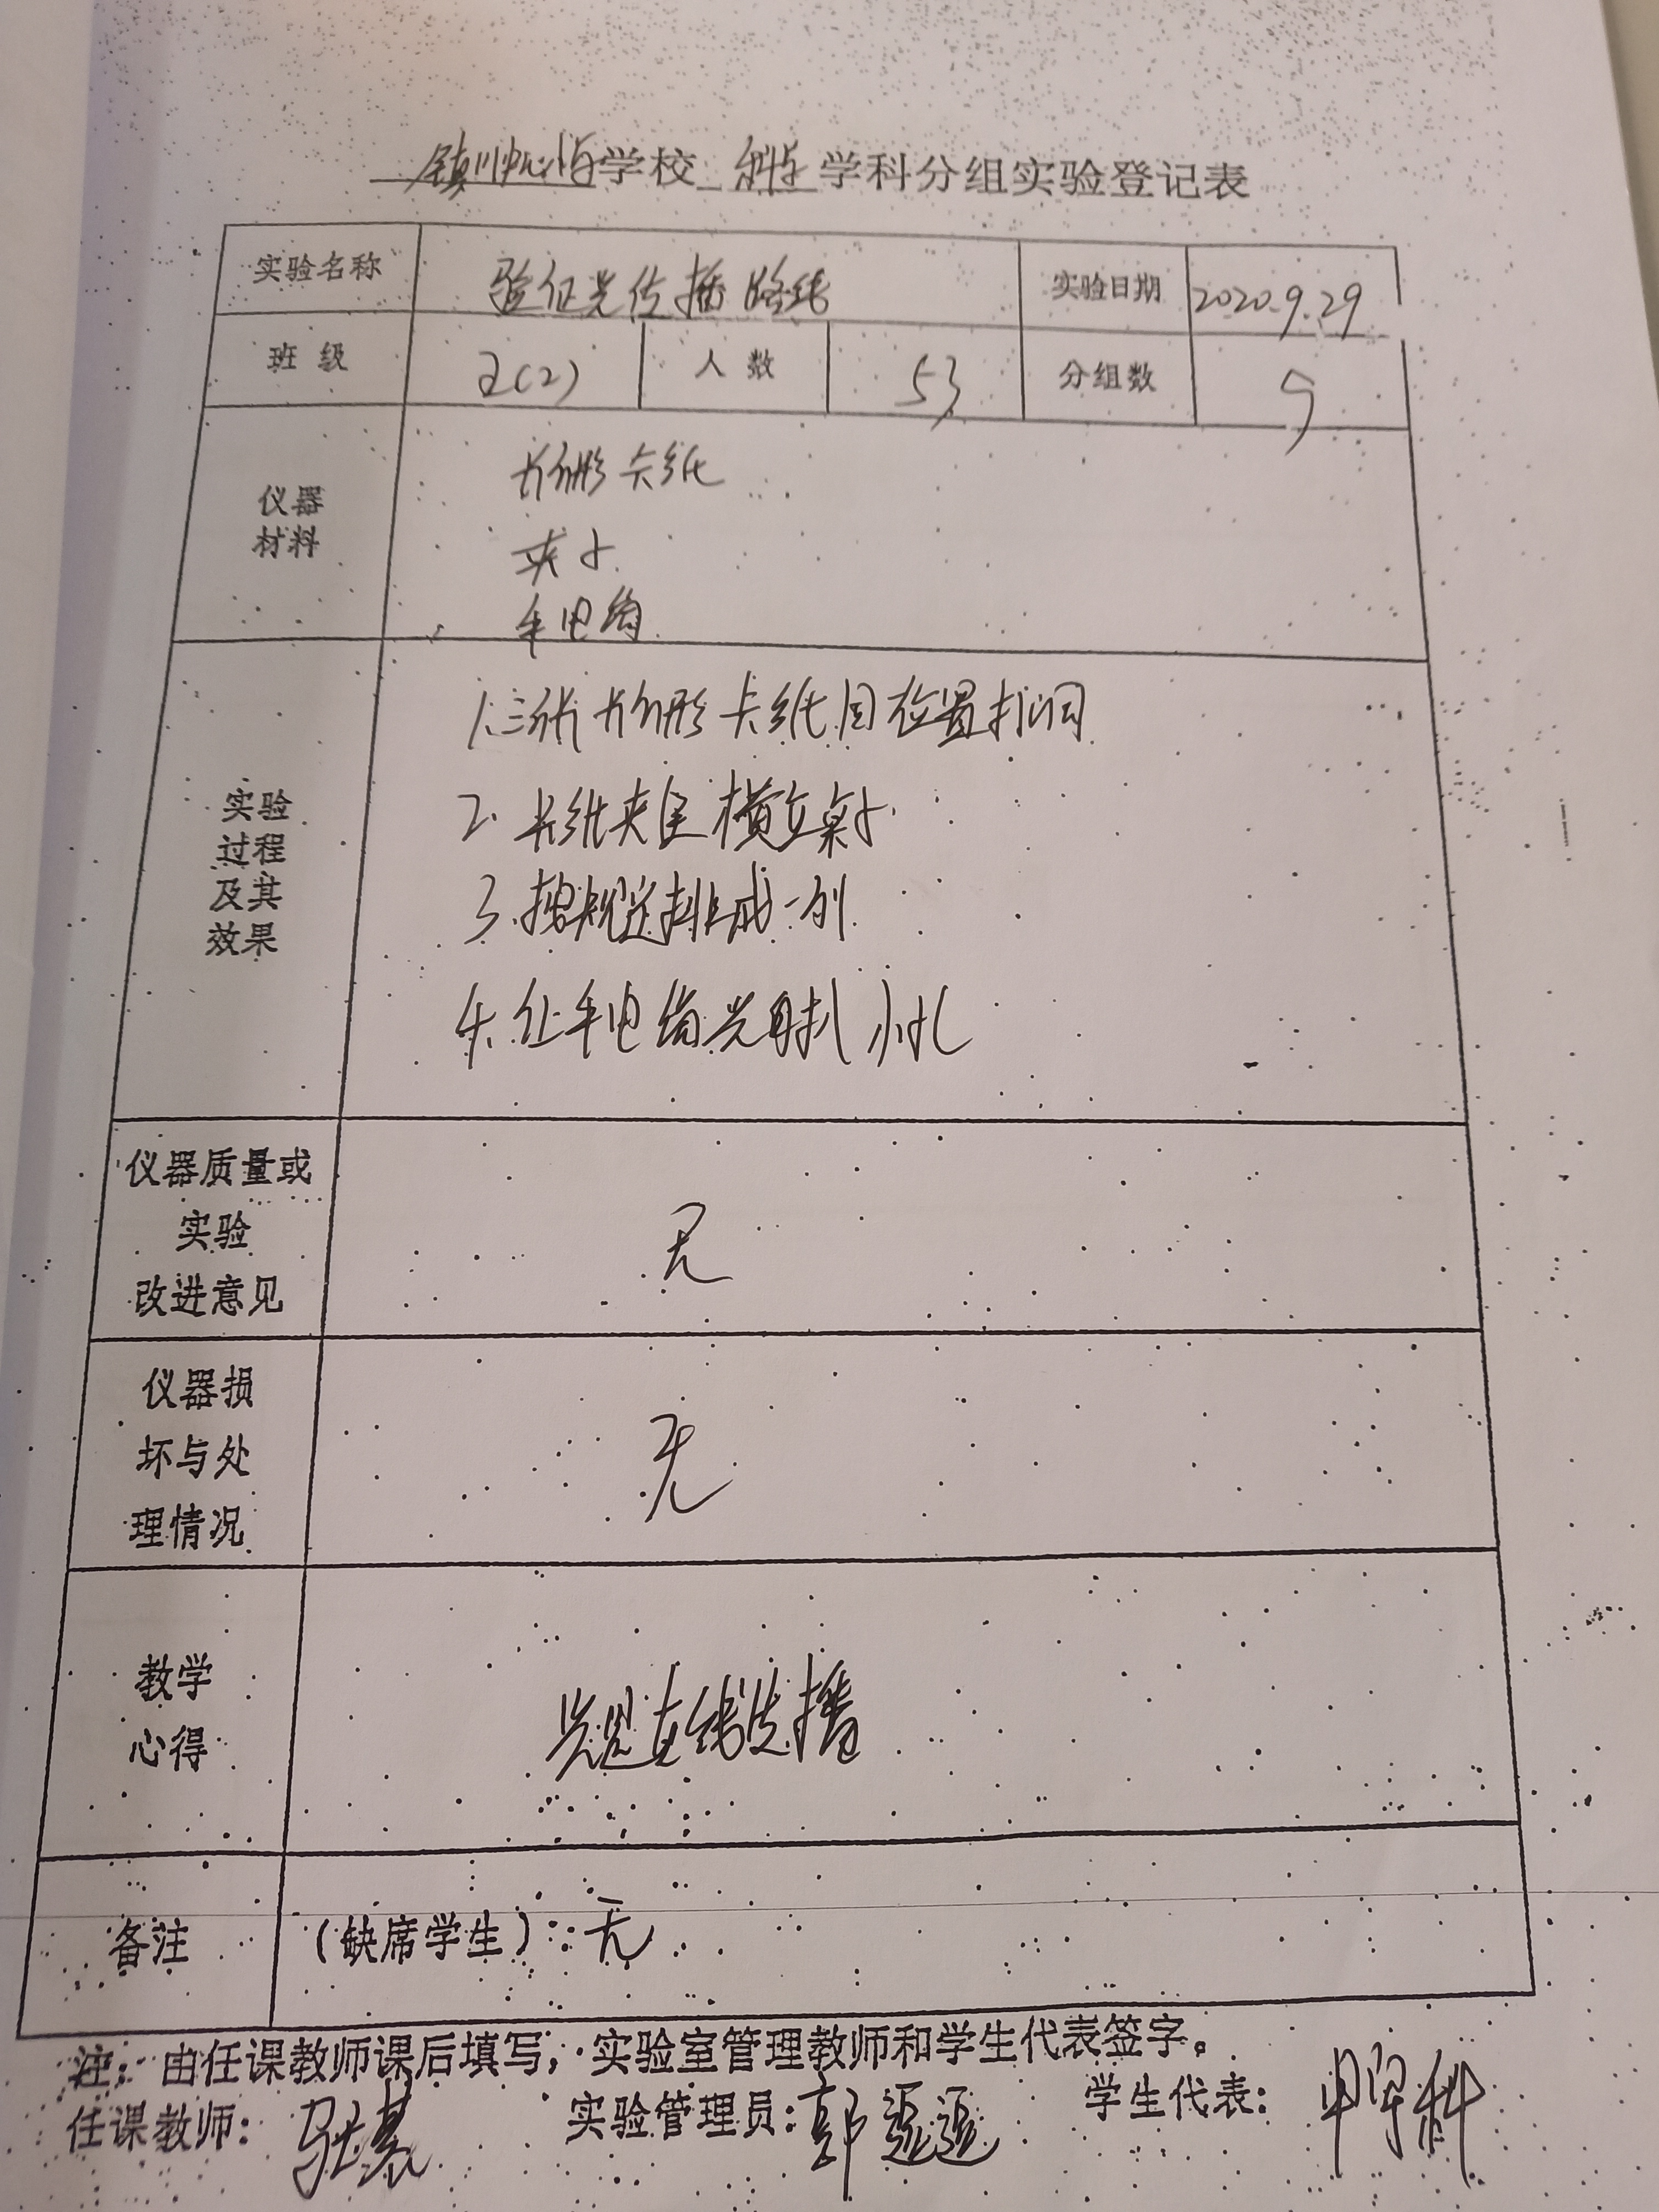 学校 科学 学科分组实验登记表
实验名称 验证光传播路线 实验日期 2020.9.29
班级 2(2) 人数 53 分组数
仪器
材料
长方形卡纸
夹子
手电筒
实验
过程
及其
效果
1.三张长方形卡纸同位置打洞
2.卡纸夹 横立桌子
3.按规定排成一列
4.让手电筒光射 小孔
仪器质量或
实验
改进意见
无
仪器损
坏与处
理情况
无
教学
心得
光是直线传播
备注 (缺席学生):无
注:由任课教师课后填写,实验室管理教师和学生代表签字。
任课教师: 实验管理员:郭 学生代表: